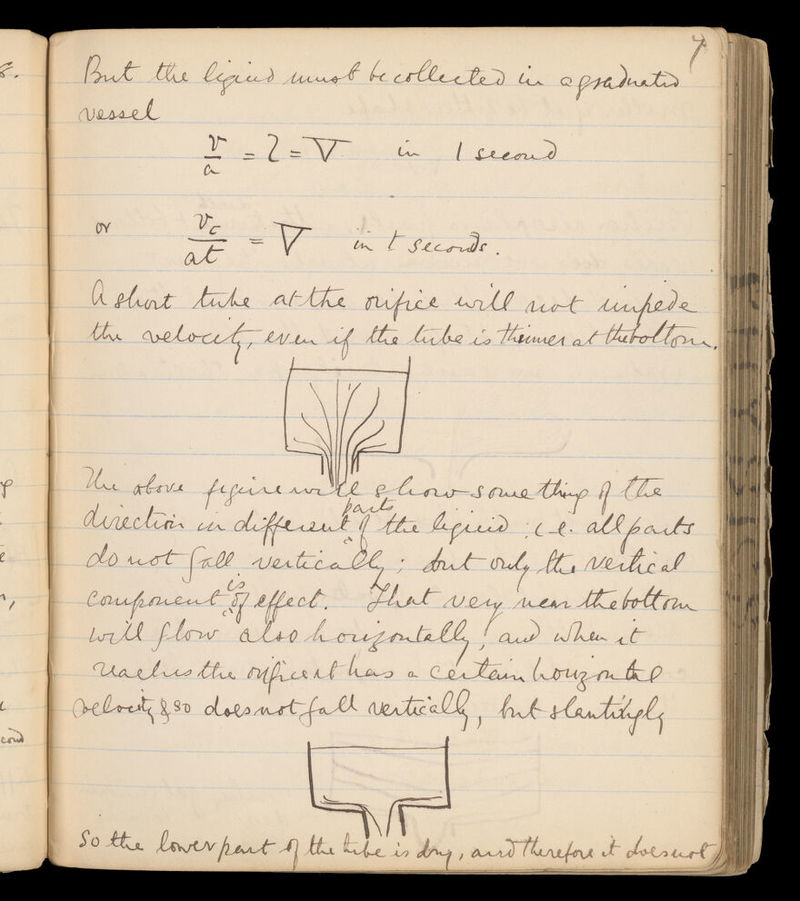 7
But the liquid must be collected in a graduated
vessel
v/a = l = V in 1 second
or v_c/at = V in t seconds.
A short tube at the orifice will not impede
the velocity, even if the tube is thinner at the bottom.
The above figure will show something of the
direction in different parts of the liquid : i.e. all parts
do not fall vertically ; but only the vertical
component is of effect. That very near the bottom
will flow also horizontally, and when it
reaches the orifice it has a certain horizontal
velocity & so does not fall vertically, but slantingly
So the lower part of the tube is dry, and therefore it does not